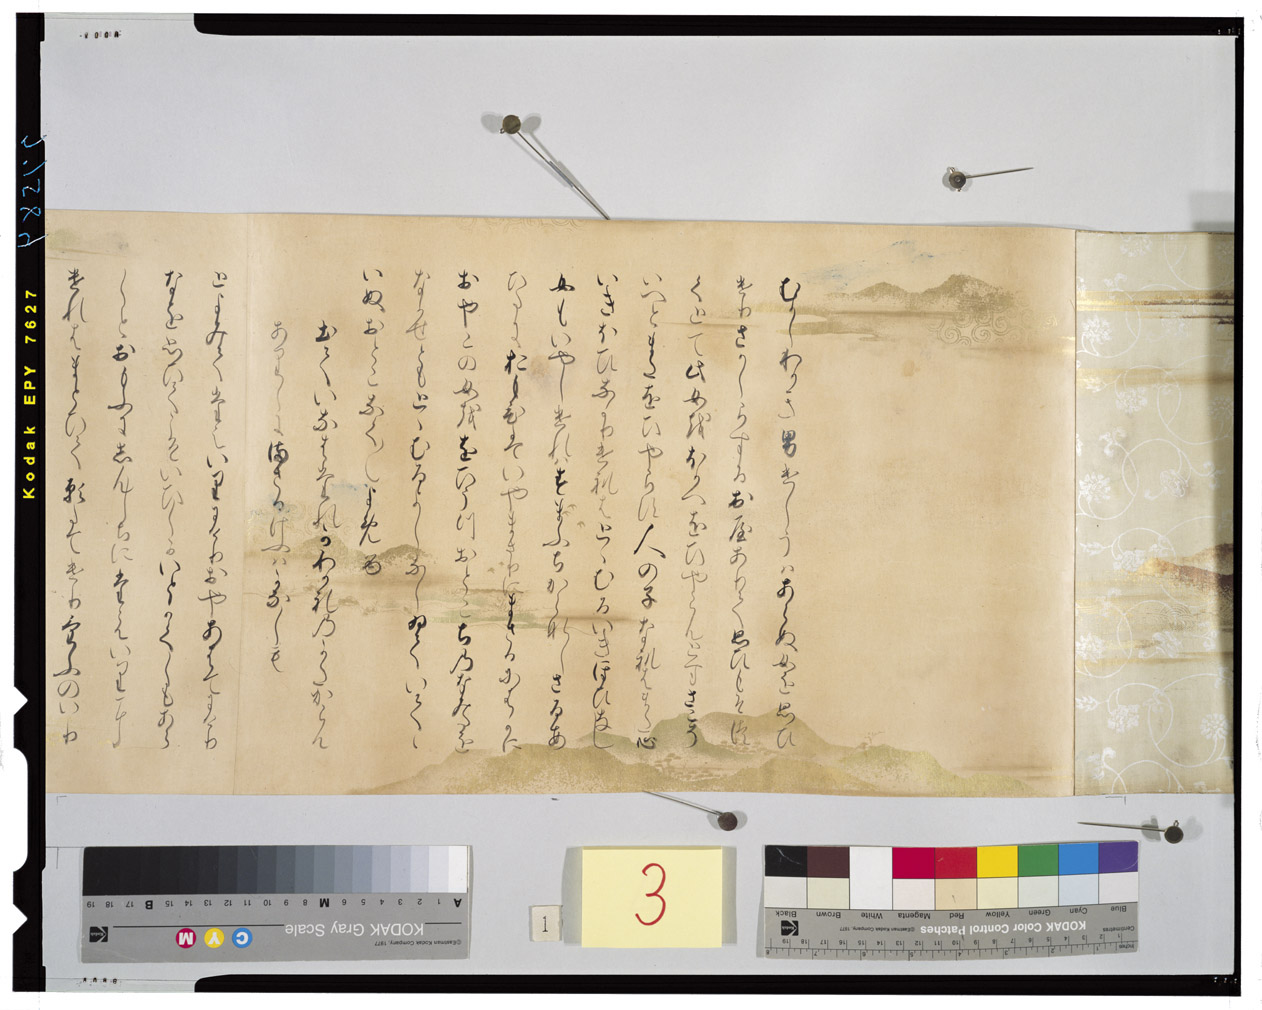 むかしわかき男けしうはあらぬ女を思ひ
けりさかしらするおやありて思ひもそつ
くとて此女をほかへをひやらんとすさこそ
いへとまたをひやらす人の子なれはまた心
いきおひなかりけれはとゝむるいきほひなし
女もいやしけれはすまふちからなしさるあ
ひたにおもひはいやまさりにまさるにはかに
おやこの女ををひうつおとこちのなみたを
なかせともとゝむるよしなしゐていてゝ
いぬおとこなく〳〵よめる
出ていなはたれかわかれのかたからん
ありしにまさるけふはかなしも
とよみてたえいりにけりおやあはてにけり
なを思ひてこそいひしかいとかくしもあら
しとおもふにしんしちにたえいりに
けれはまとひて願たてけりけふのいり
Kodak EPY 7627
3
1
A 1 2 3 4 5 6 M 8 9 10 11 12 13 14 15 B 17 18 19
KODAK Gray Scale
C Y M
Kodak
©Eastman Kodak Company, 1977
Blue Cyan Green Yellow Red Magenta White Brown Black
KODAK Color Control Patches
Kodak
©Eastman Kodak Company, 1977
Centimetres
Inches